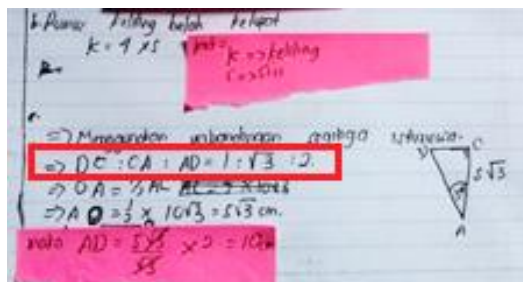 b. Rumus keliling belah ketupat
K = 4 x s
K => keliling
s => sisi
=> Menggunakan perbandingan segitiga istimewa.
=> DC : CA : AD = 1 : √3 : 2.
=> OA = ½ AC
=> AO = ½ x 10√3 = 5√3 cm.
AD = 5√3/√3 x 2 = 10
C
5√3
A